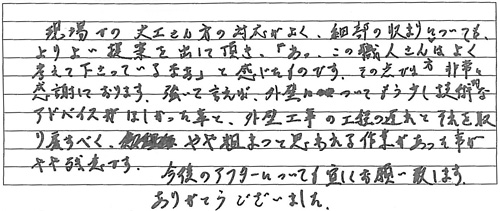 現場での大工さん方の対応がよく、細部の収まりについても、
よりよい提案を出して頂き、「あっ、この職人さんはよく
考えて下さっているなぁ」と感じたものです。その点では方 非常に
感謝しております。強いて言えば、外壁についてもう少し技術的な
アドバイスがほしかった事と、外壁工事の工程の遅れを取
り戻すべく、やや粗まつと思われる作業があった事が
やや残念です。
今後のアフターについても宜しくお願い致します。
ありがとうございました。